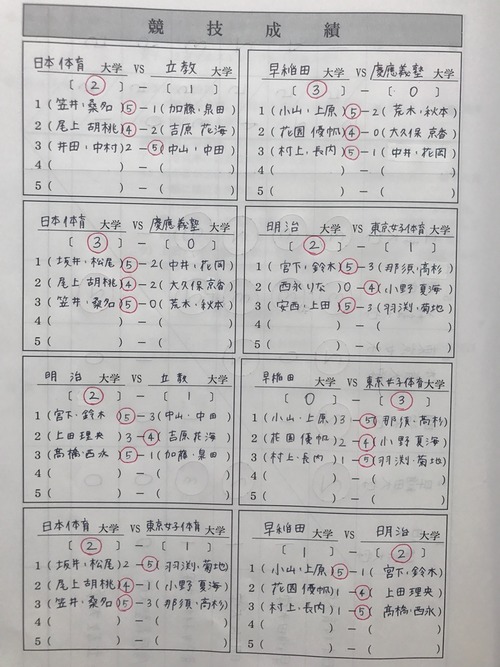 競技成績
日本体育 大学 VS 立教 大学
[ ② ] — [ 1 ]
1 (笠井・桑名) ⑤ — 1 (加藤・泉田)
2 (尾上 胡桃) ④ — 2 (吉原 花海)
3 (井田・中村) 2 — ⑤ (中山・中田)
4 ( ) — ( )
5 ( ) — ( )
早稲田 大学 VS 慶應義塾 大学
[ ③ ] — [ 0 ]
1 (小山・上原) ⑤ — 2 (荒木・秋本)
2 (花園 優帆) ④ — 0 (大久保 京香)
3 (村上・長内) ⑤ — 1 (中井・花岡)
4 ( ) — ( )
5 ( ) — ( )
日本体育 大学 VS 慶應義塾 大学
[ ③ ] — [ 0 ]
1 (坂井・松尾) ⑤ — 2 (中井・花岡)
2 (尾上 胡桃) ④ — 2 (大久保 京香)
3 (笠井・桑名) ⑤ — 0 (荒木・秋本)
4 ( ) — ( )
5 ( ) — ( )
明治 大学 VS 東京女子体育 大学
[ ② ] — [ 1 ]
1 (宮下・鈴木) ⑤ — 3 (那須・高杉)
2 (西永 りな) 0 — ④ (小野 夏海)
3 (安西・上田) ⑤ — 3 (羽渕・菊地)
4 ( ) — ( )
5 ( ) — ( )
明治 大学 VS 立教 大学
[ ② ] — [ 1 ]
1 (宮下・鈴木) ⑤ — 3 (中山・中田)
2 (上田 理央) 3 — ④ (吉原 花海)
3 (高橋・西永) ⑤ — 1 (加藤・泉田)
4 ( ) — ( )
5 ( ) — ( )
早稲田 大学 VS 東京女子体育 大学
[ 0 ] — [ ③ ]
1 (小山・上原) 3 — ⑤ (那須・高杉)
2 (花園 優帆) 2 — ④ (小野 夏海)
3 (村上・長内) 1 — ⑤ (羽渕・菊地)
4 ( ) — ( )
5 ( ) — ( )
日本体育 大学 VS 東京女子体育 大学
[ ② ] — [ 1 ]
1 (坂井・松尾) 2 — ⑤ (羽渕・菊地)
2 (尾上 胡桃) ④ — 1 (小野 夏海)
3 (笠井・桑名) ⑤ — 3 (那須・高杉)
4 ( ) — ( )
5 ( ) — ( )
早稲田 大学 VS 明治 大学
[ 1 ] — [ ② ]
1 (小山・上原) ⑤ — 1 (宮下・鈴木)
2 (花園 優帆) 1 — ④ (上田 理央)
3 (村上・長内) 1 — ⑤ (高橋・西永)
4 ( ) — ( )
5 ( ) — ( )